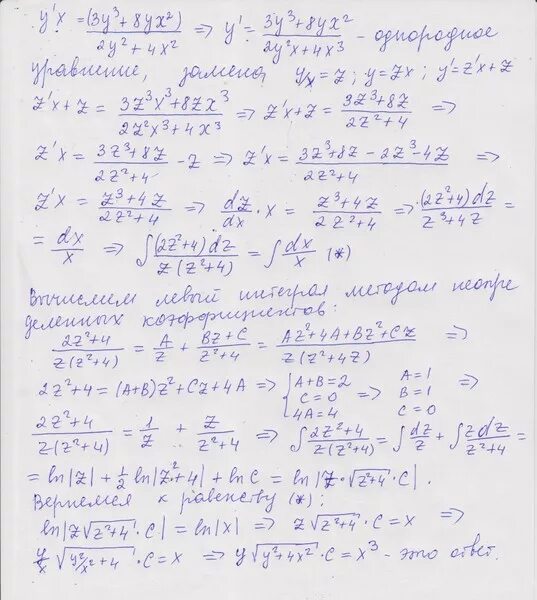 y'x = (3y³+8yx²)/(2y²+4x²) => y' = (3y³+8yx²)/(2y²x+4x³) - однородное
уравнение, замена y/x = z ; y = zx ; y' = z'x+z
z'x+z = (3z³x³+8zx³)/(2z²x³+4x³) => z'x+z = (3z³+8z)/(2z²+4) =>
z'x = (3z³+8z)/(2z²+4) - z => z'x = (3z³+8z-2z³-4z)/(2z²+4) =>
z'x = (z³+4z)/(2z²+4) => dz/dx · x = (z³+4z)/(2z²+4) => (2z²+4)dz/(z³+4z) =
= dx/x => ∫ (2z²+4)dz/(z(z²+4)) = ∫ dx/x (*)
Вычислим левый интеграл методом неопре
деленных коэффициентов:
(2z²+4)/(z(z²+4)) = A/z + (Bz+C)/(z²+4) = (Az²+4A+Bz²+Cz)/(z(z²+4z)) =>
2z²+4 = (A+B)z²+Cz+4A => { A+B=2 C=0 4A=4 => A=1 B=1 C=0 =>
(2z²+4)/(z(z²+4)) = 1/z + z/(z²+4) => ∫ (2z²+4)/(z(z²+4)) = ∫ dz/z + ∫ zdz/(z²+4) =
= ln|z| + ½ ln|z²+4| + ln C = ln|z·√(z²+4)·C|.
Вернемся к равенству (*):
ln|z√(z²+4)·C| = ln|x| => z√(z²+4)·C = x =>
y/x √(y²/x²+4)·C = x => y√(y²+4x²)·C = x³ - это ответ.